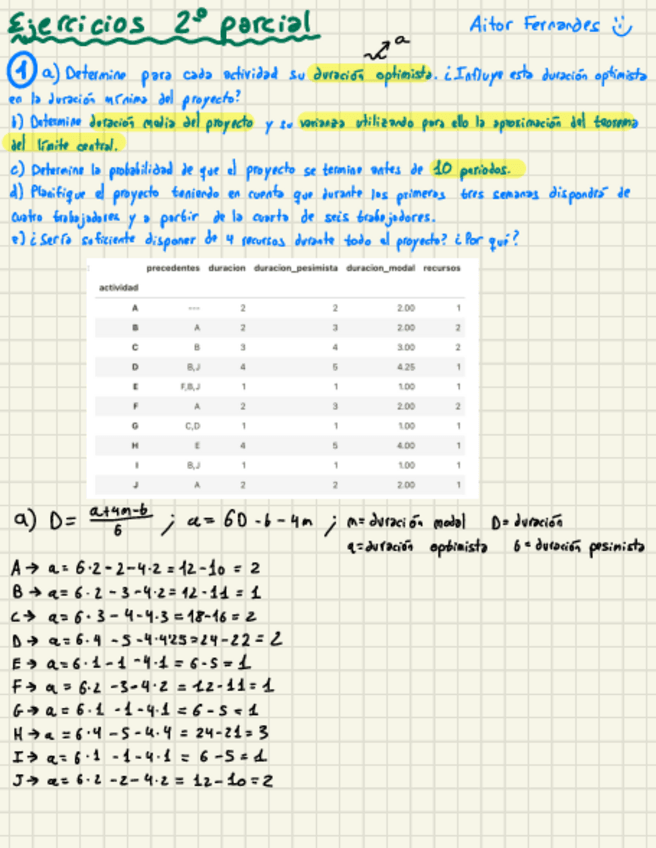 Ejercicios 2º parcial
Aitor Fernandes
a
1 a) Determine para cada actividad su duración optimista. ¿Influye esta duración optimista
en la duración mínima del proyecto?
b) Determine duración media del proyecto y su varianza utilizando para ello la aproximación del teorema
del límite central.
c) Determine la probabilidad de que el proyecto se termine antes de 10 periodos.
d) Planifique el proyecto teniendo en cuenta que durante las primeras tres semanas dispondrá de
cuatro trabajadores y a partir de la cuarta de seis trabajadores.
e) ¿Sería suficiente disponer de 4 recursos durante todo el proyecto? ¿Por qué?
precedentes duracion duracion_pesimista duracion_modal recursos
actividad
A --- 2 2 2.00 1
B A 2 3 2.00 2
C B 3 4 3.00 2
D B,J 4 5 4.25 1
E F,B,J 1 1 1.00 1
F A 2 3 2.00 2
G C,D 1 1 1.00 1
H E 4 5 4.00 1
I B,J 1 1 1.00 1
J A 2 2 2.00 1
a) D = a+4m-b / 6 ; a = 6D - b - 4m ; m = duración modal D = duración
a = duración optimista b = duración pesimista
A → a = 6·2 - 2 - 4·2 = 12 - 10 = 2
B → a = 6·2 - 3 - 4·2 = 12 - 11 = 1
C → a = 6·3 - 4 - 4·3 = 18 - 16 = 2
D → a = 6·4 - 5 - 4·4'25 = 24 - 22 = 2
E → a = 6·1 - 1 - 4·1 = 6 - 5 = 1
F → a = 6·2 - 3 - 4·2 = 12 - 11 = 1
G → a = 6·1 - 1 - 4·1 = 6 - 5 = 1
H → a = 6·4 - 5 - 4·4 = 24 - 21 = 3
I → a = 6·1 - 1 - 4·1 = 6 - 5 = 1
J → a = 6·2 - 2 - 4·2 = 12 - 10 = 2